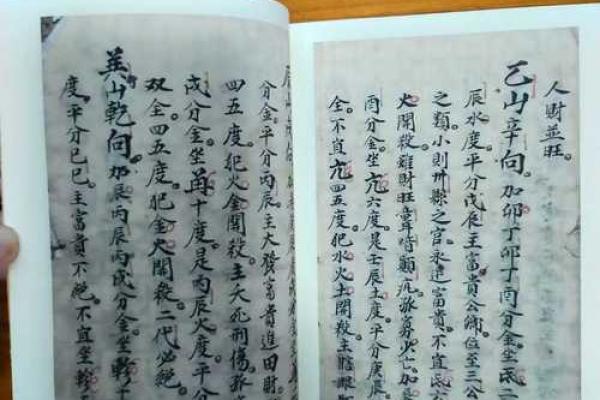 人財並旺。
乙山辛向。加卯丁卯丁酉分金。坐氐二
辰水度。平分戊辰。主富貴公卿。位至三公
之類。小則州縣之官。永遠富貴。不宜氐六
火関殺。雖財旺。聾啞顛亢孤寡少亡。加
酉分金。坐亢六度。是壬辰土度。平分庚辰
全。不宜亢四五度。犯水火土関殺。主瞎眼
辰山戌向
分金。平分丙辰。主大發富貴。進田財。
四五度。犯火金関殺。主夭死刑傷。孤
戌分金。坐角十度。是丙辰火度。平分
双全。四五度。犯金火関殺。二代必絕。
巽山乾向。加辰丙辰丙戌分金。坐軫十
度。平分己巳。主富貴不絕。不宜坐軫